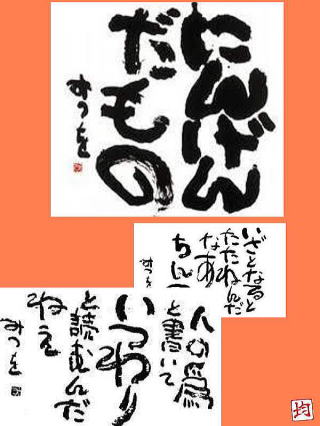 にんげん
だもの
みつを
いざとなると
たたねんだ
なあ
ちん
みつを
人の為
と書いて
いつわり
と読むんだ
ねえ
みつを
均